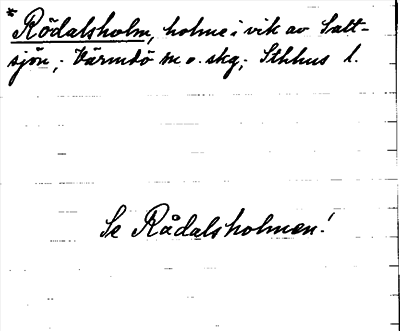 * Rödalsholm, holme i vik av Salt-
sjön, Värmdö m. o. skg, Sthhus l.
Se Rådalsholmen!